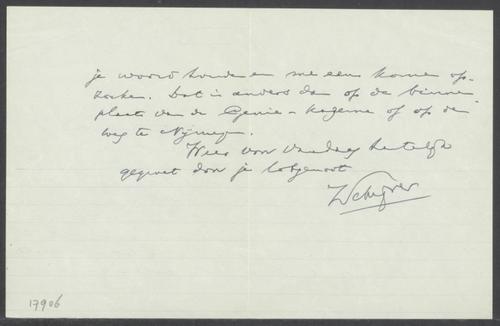 je woord houden en me eens komen op-
zoeken. Dat is anders dan op de binnen
plaats van de Genie-kazerne of op de
weg te Nijmegen.
Wees voor vandaag hartelijk
gegroet door je lotgenoot
17906